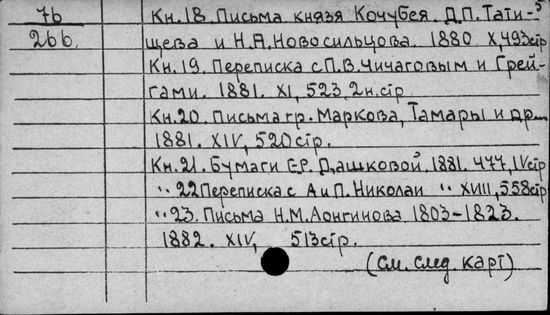 7б
266.
Кн.18. Письма князя Кочубея. Д.П. Тати-
щева и Н.Н. Новосильцова. 1880 X, 493стр
Кн.19. Переписка с П.В. Чичаговым и Грей-
гами. 1881. XI, 523, 2н.стр
Кн.20. Письма гр. Маркова, Тамары и др.
1881. XIV, 520стр.
Кн.21. Бумаги Е.Р. Дашковой. 1881. 477, IVстр
".. 22 Переписка с А и П. Николаи " XVIII, 558стр
".. 23. Письма Н.М. Лонгинова 1803-1823.
1882. XIV, 513стр.
(См. след. карт)